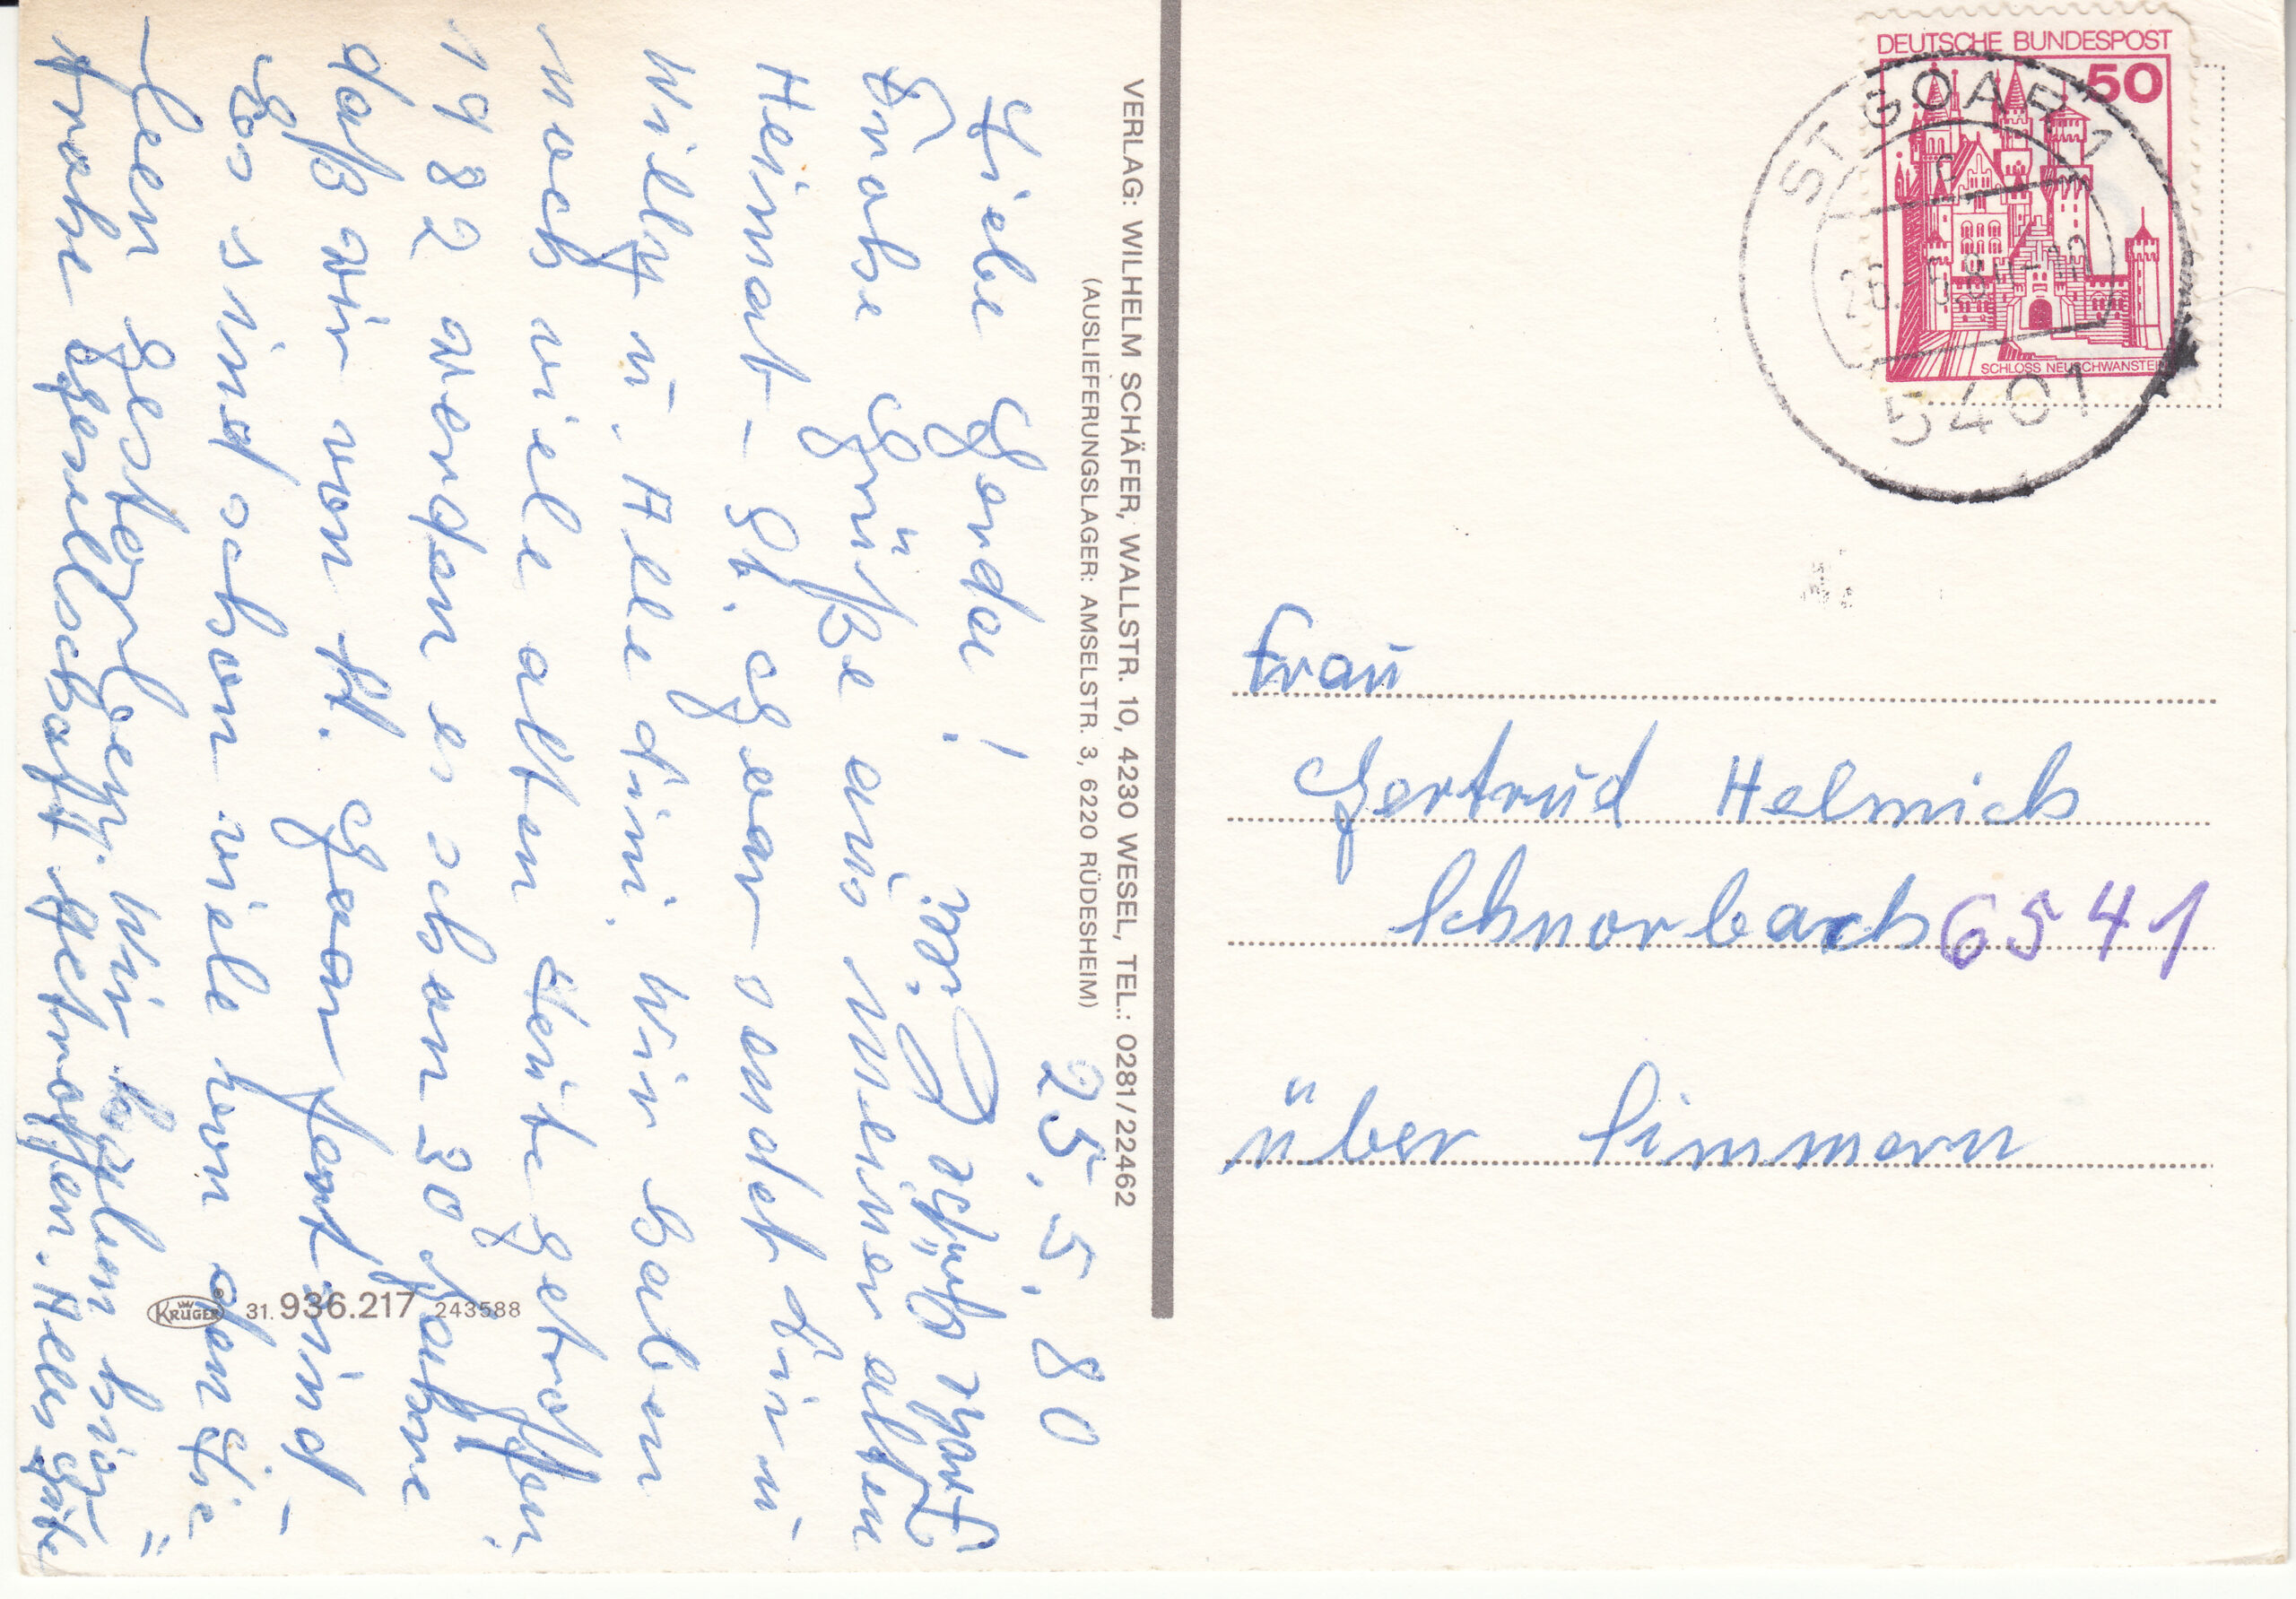 25.5.80
Liebe Gerda!
Frohe Grüße aus meiner alten
Heimat - St. Goar sendet Dir
Willy u. Alledini. Wir haben
noch viele alten Leute getroffen.
1982 werden es schon 30 Jahre
daß wir von St. Goar fort sind
Es sind schon viele von den Lie-
ben gestorben. Wir
frohe Gesellschaft getroffen. Alles Gute
Noch Grüße
VERLAG: WILHELM SCHÄFER, WALLSTR. 10, 4230 WESEL, TEL.: 0281/22462
(AUSLIEFERUNGSLAGER: AMSELSTR. 3, 6220 RÜDESHEIM)
KRÜGER 31.936.217 243588
DEUTSCHE BUNDESPOST
50
SCHLOSS NEUSCHWANSTEIN
ST GOAR 1
c
5401
Frau
Gertrud Helmich
Schnorbach 6541
über Simmern